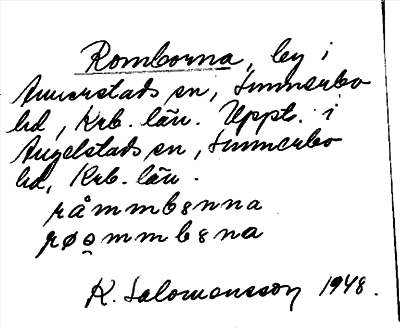 Romborna, by i
Annerstads sn, Sunnerbo
hd, Krb. län. Uppt. i
Angelstads sn, Sunnerbo
hd, Krb. län.
råmmbꝋnna
røo̲mmbꝋna
K. Salomonsson 1948.